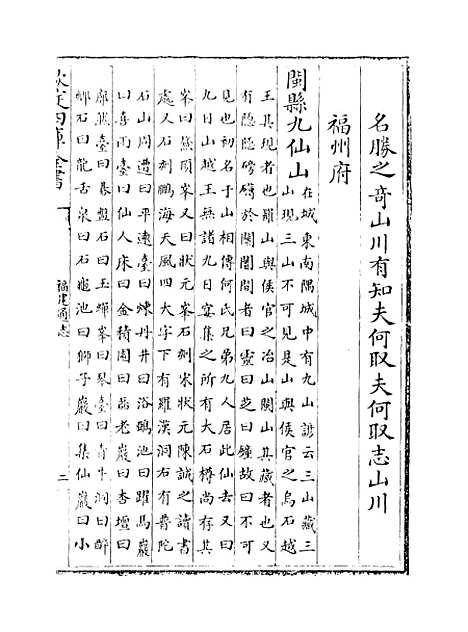 名勝之奇山川有知夫何取夫何取志山川
福州府
閩縣九仙山在城東南隅城中有九山諺云三山藏三
山現三山不可見是山與侯官之烏石越
王其現者也羅山與侯官之冶山閩山其藏者也又
有隠隠磅礴於闤闠間者曰靈曰芝曰鐘故曰不可
見也初名于山相傳何氏兄弟九人居此仙去又曰
九日山越王無諸九日宴集之所有大石樽尚存其
峯曰鼇頂峯又曰狀元峯石刻宋狀元陳誠之讀書
處又石刻鵬海天風四大字下有羅漢洞右有普陀
石山周遭曰平遠臺曰煉丹井曰浴鵶池曰躍馬巖
曰喜雨臺曰仙人床曰金積園曰磊老巖曰杏壇曰
廓然臺曰棊盤石曰玉蟬峯曰琴臺曰青牛洞曰醉
鄉石曰龍舌泉曰石龜池曰獅子巖曰集仙巖曰小
欽定四庫全書
福建通志
二